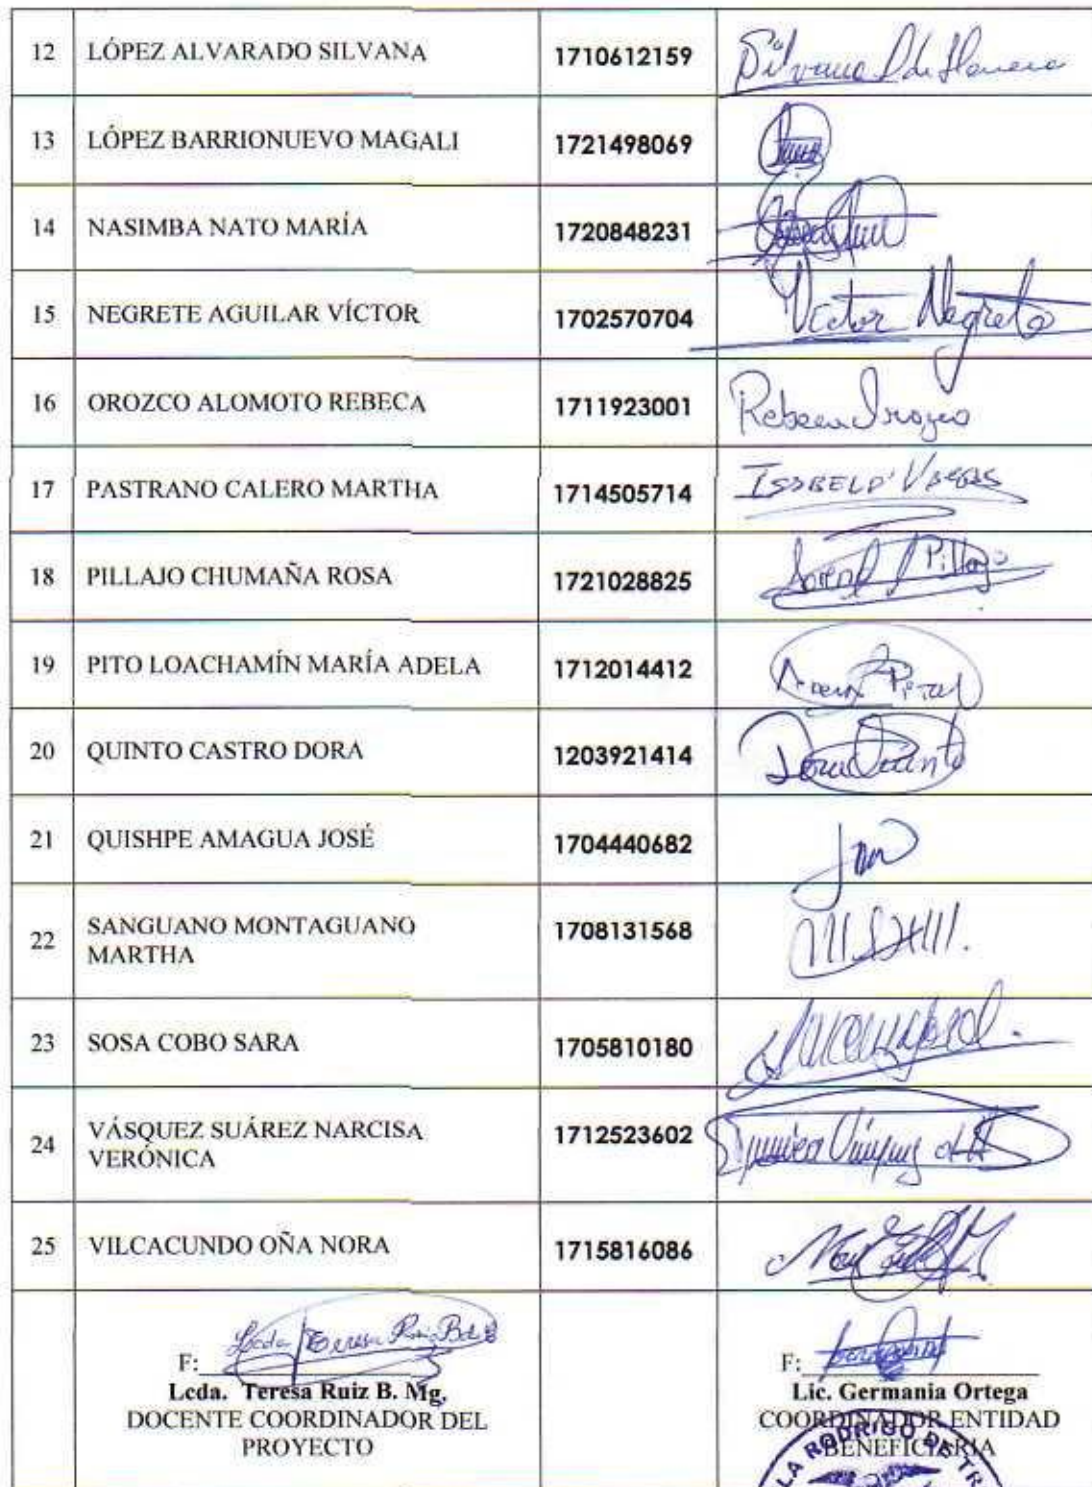 12 LÓPEZ ALVARADO SILVANA 1710612159 Silvana
13 LÓPEZ BARRIONUEVO MAGALI 1721498069
14 NASIMBA NATO MARÍA 1720848231
15 NEGRETE AGUILAR VÍCTOR 1702570704 Victor Negrete
16 OROZCO ALOMOTO REBECA 1711923001 Rebeca Orozco
17 PASTRANO CALERO MARTHA 1714505714
18 PILLAJO CHUMAÑA ROSA 1721028825 Pillajo
19 PITO LOACHAMÍN MARÍA ADELA 1712014412
20 QUINTO CASTRO DORA 1203921414 Dora Quinto
21 QUISHPE AMAGUA JOSÉ 1704440682
22 SANGUANO MONTAGUANO
MARTHA 1708131568
23 SOSA COBO SARA 1705810180
24 VÁSQUEZ SUÁREZ NARCISA
VERÓNICA 1712523602
25 VILCACUNDO OÑA NORA 1715816086
F: Lcda Teresa Ruiz
Lcda. Teresa Ruiz B. Mg.
DOCENTE COORDINADOR DEL
PROYECTO
F:
Lic. Germania Ortega
COORDINADOR ENTIDAD
BENEFICIARIA
LA RODRIGO DE TR